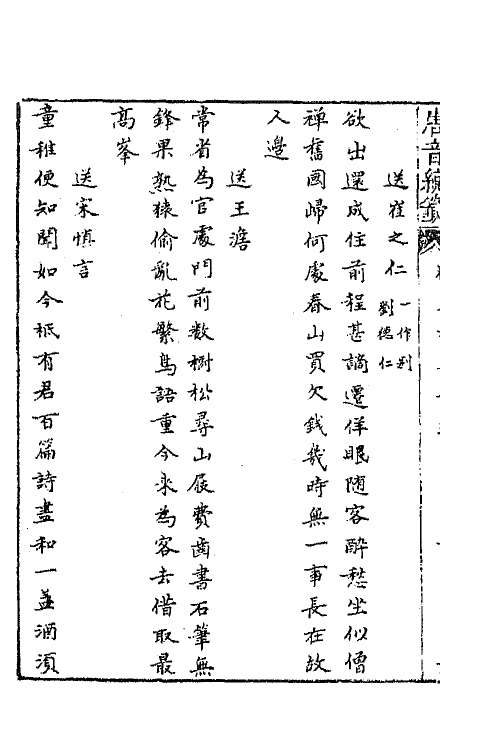 唐音統籤
送崔之仁 一作別劉德仁
欲出還成住前程甚謫遷佯眠隨客醉愁坐似僧
禪舊國歸何處春山買欠錢幾時無一事長在故
人邊
送王澹
常省為官處門前數樹松尋山屐費齒書石筆無
鋒果熟猿偷亂花繁鳥語重今來為客去借取最
髙峯
送宋慎言
童稚便知聞如今祗有君百篇詩盡和一盞酒須